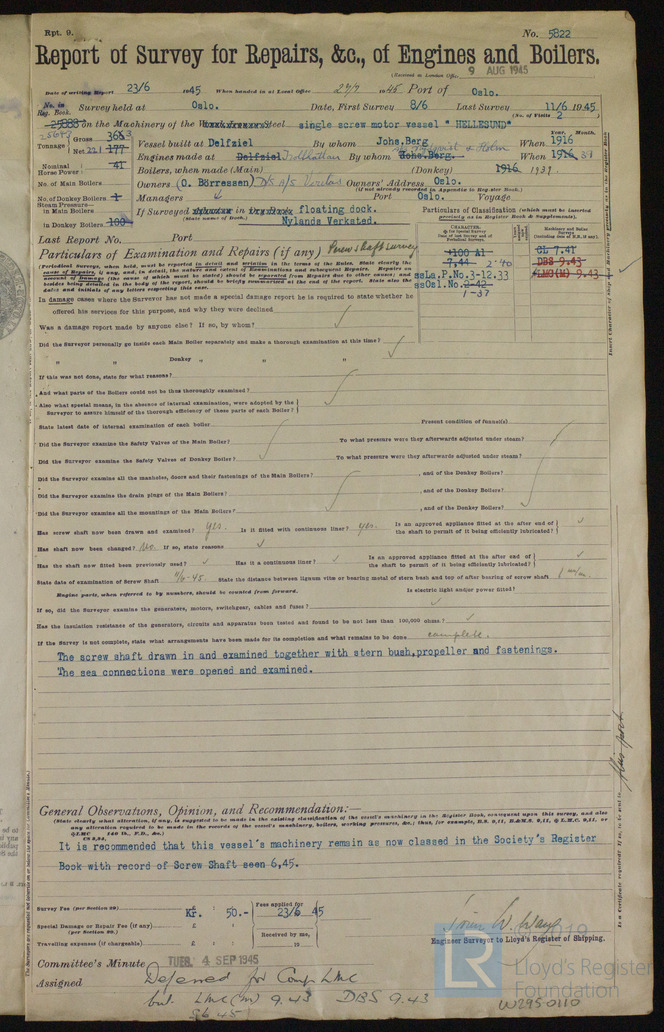 Rpt. 9.
No. 5822
Report of Survey for Repairs, &c., of Engines and Boilers.
(Received at London Office
9 AUG 1945
Date of writing Report 23/6 1945 When handed in at Local Office 27/7 1945 Port of Oslo.
No. in Reg. Book. Survey held at Oslo. Date, First Survey 8/6 Last Survey 11/6 1945
(No. of Visits 2
25888 on the Machinery of the Steel single screw motor vessel " HELLESUND"
Tonnage Gross 365
Net 221 177
Vessel built at Delfziel By whom Johs.Berg When 1916
Year. Month.
Engines made at Delfziel Trollhattan By whom Johs.Berg. & Holm When 1916
Nominal Horse Power: 41
Boilers, when made (Main) (Donkey) 1916 1939.
No. of Main Boilers
Owners (O. Börressen) D/S A/S Owners' Address Oslo.
(if not already recorded in Appendix to Register Book.)
No. of Donkey Boilers 1
Managers Port Oslo. Voyage
Steam Pressure—
in Main Boilers
in Donkey Boilers 100
If Surveyed in floating dock.
(State name of Dock.) Nylands Verksted.
Particulars of Classification (which must be inserted precisely as in Register Book & Supplements).
Last Report No. Port
Particulars of Examination and Repairs (if any) Screwshaft survey
+100 A1
7.44 2.40
ssLa.P.No.3-12.33
ssOsl.No.2-42
1-37
CL 7.41
DBS 9.43
LMC(M) 9.43
In damage cases where the Surveyor has not made a special damage report he is required to state whether he
offered his services for this purpose, and why they were declined
Was a damage report made by anyone else? If so, by whom?
Did the Surveyor personally go inside each Main Boiler separately and make a thorough examination at this time?
" " Donkey " " "
If this was not done, state for what reasons?
And what parts of the Boilers could not be thus thoroughly examined?
Also what special means, in the absence of internal examination, were adopted by the
Surveyor to assure himself of the thorough efficiency of those parts of each Boiler?
State latest date of internal examination of each boiler Present condition of funnel(s)
Did the Surveyor examine the Safety Valves of the Main Boiler? To what pressure were they afterwards adjusted under steam?
Did the Surveyor examine the Safety Valves of Donkey Boiler? To what pressure were they afterwards adjusted under steam?
Did the Surveyor examine all the manholes, doors and their fastenings of the Main Boilers? , and of the Donkey Boilers?
Did the Surveyor examine the drain plugs of the Main Boilers? , and of the Donkey Boilers?
Did the Surveyor examine all the mountings of the Main Boilers? , and of the Donkey Boilers?
Has screw shaft now been drawn and examined? Yes. Is it fitted with continuous liner? yes. Is an approved appliance fitted at the after end of the shaft to permit of it being efficiently lubricated?
Has shaft now been changed? No. If so, state reasons
Has the shaft now fitted been previously used? Has it a continuous liner? Is an approved appliance fitted at the after end of the shaft to permit of it being efficiently lubricated?
State date of examination of Screw Shaft 11/6-45 State the distance between lignum vitæ or bearing metal of stern bush and top of after bearing of screw shaft 1 m/m.
Engine parts, when referred to by numbers, should be counted from forward. Is electric light and/or power fitted?
If so, did the Surveyor examine the generators, motors, switchgear, cables and fuses?
Has the insulation resistance of the generators, circuits and apparatus been tested and found to be not less than 100,000 ohms?
If the Survey is not complete, state what arrangements have been made for its completion and what remains to be done complete.
The screw shaft drawn in and examined together with stern bush,propeller and fastenings.
The sea connections were opened and examined.
General Observations, Opinion, and Recommendation:—
It is recommended that this vessel's machinery remain as now classed in the Society's Register
Book with record of Screw Shaft seen 6,45.
Survey Fee (per Section 29) Kr. 50.- Fees applied for 23/6 45
Special Damage or Repair Fee (if any) (per Section 29.) £ : :
Received by me,
Travelling expenses (if chargeable) £ : : 19
Engineer Surveyor to Lloyd's Register of Shipping.
Committee's Minute TUES. 4 SEP 1945
Assigned Deferred for Comp LMC
but. LMC (M) 9.43 DBS 9.43
S6.45
LR
2019
Lloyd's Register
Foundation
W295-0110